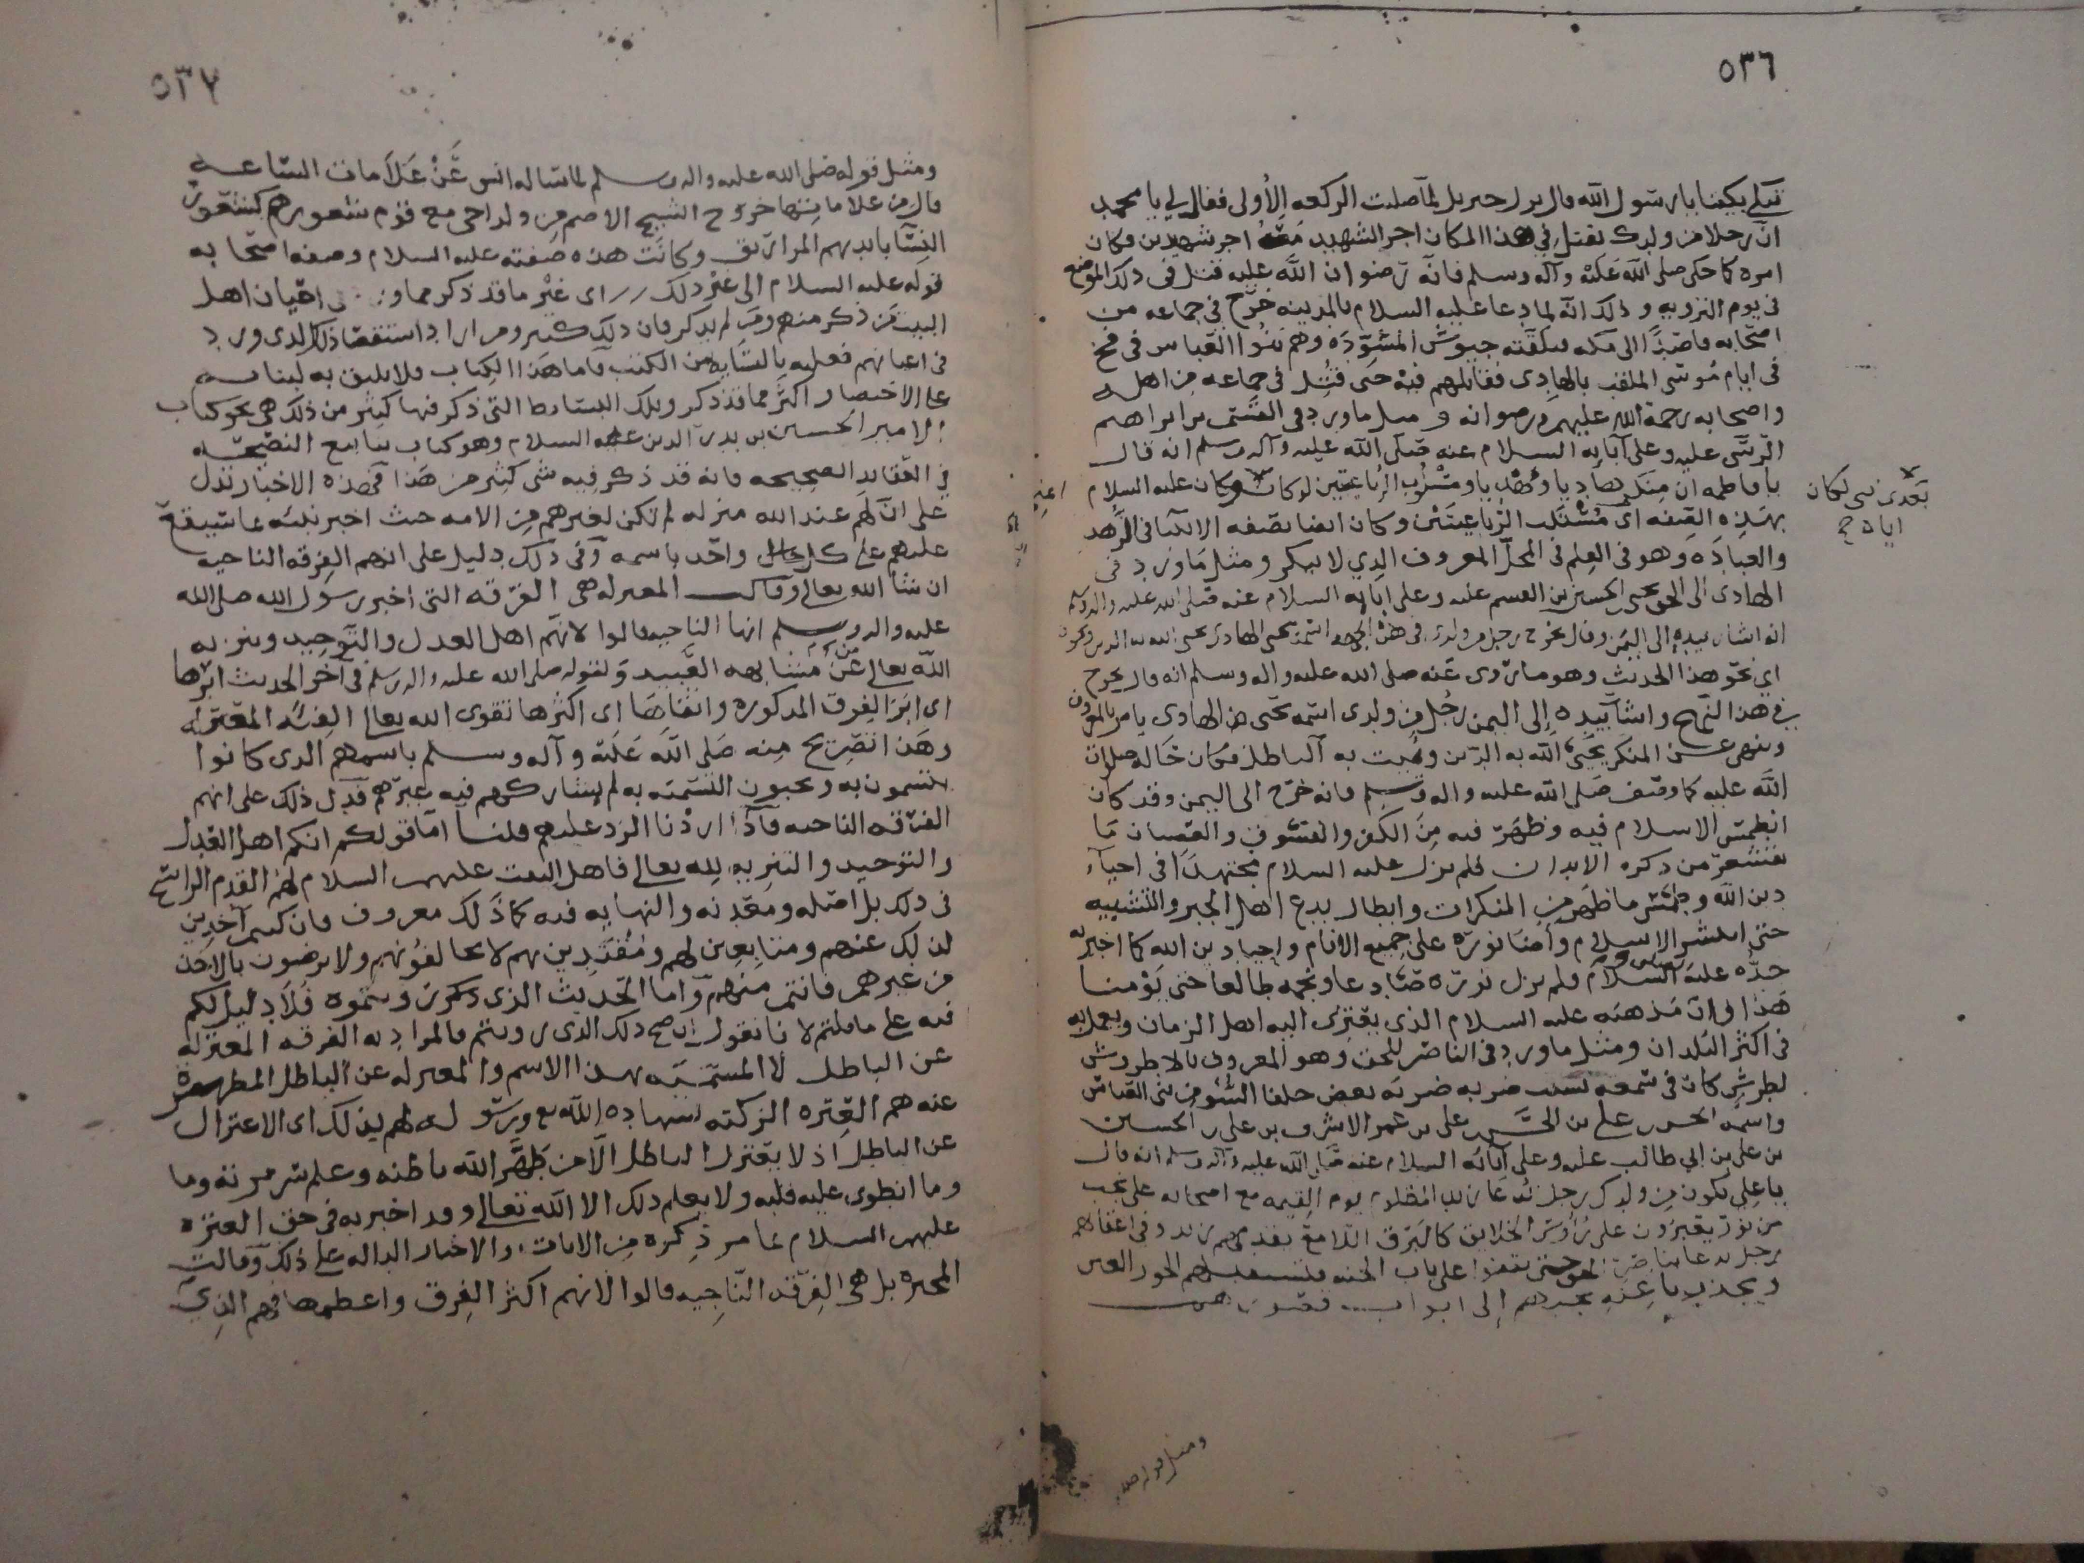 ٥٣٦
تبكي بكينا يا رسول الله قال نزل جبريل لما صليت الركعه الأولى فقال لي يا محمد
ان رجلا من ولدك يقتل في هذا المكان اجر الشهيد معه اجر شهيدين وكان
امره كما حكى صلى الله عليه وآله وسلم فانه رضوان الله عليه قتل في ذلك الموضع
في يوم الترويه وذلك انه لما دعا عليه السلام بالمدينه خرج في جماعه من
اصحابه قاصدًا الى مكه فلقته جيوش المسوّده وهم بنوا العباس في فخ
في ايام موسى الملقب بالهادي فقاتلهم فيه حتى قُتل في جماعه من اهله
واصحابه رحمة الله عليهم ورضوانه ومثل ما ورد في القسم بن ابراهيم
الرسّي عليه وعلى آبائه السلام عنه صلى الله عليه وآله وسلم انه قال
يا فاطمه ان منك هاديا ومهديا ومستلب الرباعيتين لو كان وكان عليه السلام
بعدي نبي لكان
اياه ح
بهذه الصفه اي مستلب الرباعيتين وكان ايضا بصفه الانبيا في الزهد
والعباده وهو في العلم في المحل المعروف الذي لا ينكر ومثل ما ورد في
الهادي الى الحق يحيى بن الحسين بن القسم عليه وعلى ابايه السلام عنه صلى الله عليه وآله وسلم
انه اشار بيده الى اليمن وقال يخرج رجل من ولدي في هذه الجهه اسمه يحيى الهادي يحيى الله به الدين
اي نحو هذا الحديث وهو ما روى عنه صلى الله عليه واله وسلم انه قال يخرج
في هذا النهج واشار بيده إلى اليمن رجُل من ولدي اسمه يحيى الهادي يامر بالمعروف
وينهى عن المنكر يحيى الله به الدين ويميت به الباطل فكان حاله صلوات
الله عليه كما وصف صلى الله عليه واله وسلم فانه خرج الى اليمن وقد كان
انطمس الاسلام فيه وظهر فيه من الكفر والفسوق والعصيان ما
تقشعر من ذكره الابدان فلم يزل عليه السلام مجتهدًا في احياء
دين الله وطمس ما ظهر من المنكرات وابطال بدع اهل الجبر والتشبيه
حتى انتشر الاسلام واضا نوره على جميع الانام واحيا دين الله كما اخبر به
جدّه عليه السلام ولم يزل نوره صاعدا ونجمه طالعا حتى يَومنا
هذا وان مذهبه عليه السلام الذي يعتزى اليه اهل الزمان ويعمل به
في اكثر البلدان ومثل ما ورد في الناصر للحق وهو المعروف بالاطروش
لطرش كان في سمعه بسبب ضربه ضربه بعض خلفا السوء من بني العباس
واسمه الحسن بن علي بن الحسن بن علي بن عمر الاشرف بن علي بن الحسين
بن علي بن ابي طالب عليه وعلى آبائه السلام عنه صلى الله عليه وآله وسلم انه قال
يا علي يكون من ولدك رجل يدعا زيد المظلوم يوم القيمه مع اصحابه على نجب
من نور يعبرون على رؤس الخلايق كالبرق اللامع يقدمهم زيد وفي اعقابهم
رجل يدعا ناصر الحق حتى يقفوا على باب الجنه فتستقبلهم الحور العين
ويجذب باعنه نجبهم إلى ابواب قصورهم
ومثل قوله صلى
٥٣٧
ومثل قوله صلى الله عليه واله وسلم لما ساله انس عَنْ عَلاَمات الساعه
قال من علاماتها خروج الشيخ الاصم من ولد اخي مع قوم شعورهم كشعور
النسا بايديهم المزاريق وكانت هذه صفته عليه السلام وصفه اصحابه
قوله عليه السلام الى غير ذلك اي غير ما قد ذكر مما ورد في اعيان اهل
البيت من ذكر منهم ومن لم يذكر فان ذلك كثير ومن اراد استقصا ذلك الذي ورد
في اعيانهم فعليه بالبسايط من الكتب فاما هذا الكتاب فلا يليق به لبنائه
على الاختصار اكثر مما قد ذكر وتلك البسايط التي ذكر فيها كثير من ذلك هي نحو كتاب
الامير الحسين بن بدر الدين عليه السلام وهو كتاب ينابيع النصيحه
في العقايد الصحيحه فانه قد ذكر فيه شي كثير من هذا فهذه الاخبار تدل
على ان لهم عند الله منزله لم تكن لغيرهم من الامه حيث اخبر نبيّه بما سيقع
عليهم على كل حال واحد باسمه وفي ذلك دليل على انهم الفرقه الناجيه
ان شا الله تعالى وقالت المعتزله هي الفرقه التي اخبر رسول الله صلى الله
عليه واله وسلم انها الناجيه قالوا لانهم اهل العدل والتوحيد وتنزيه
الله تعالى عن مشابهه العبيد ولقوله صلى الله عليه واله وسلم في آخر الحديث ابرّها
اي ابرّ الفرق المذكوره واتقاها اي اكثرها تقوى الله تعالى الفئه المعتزله
وهذا تصريح منه صلى الله عليه وآله وسلم باسمهم الذي كانوا
يتسمون به ويحبون التسميه به لم يشاركهم فيه غيرهم فدل ذلك على انهم
الفرقه الناجيه فاذا اردنا الرد عليهم قلنا اما قولكم انكم اهل العدل
والتوحيد والتنزيه لله تعالى فاهل البيت عليهم السلام لهم القدم الراسخ
في ذلك بل اصله ومعدنه والنهايه فيه كما ذلك معروف فان كنتم آخذين
لذلك عنهم ومتابعين لهم ومقتدين بهم لا تخالفونهم ولا ترضون بالاخذ
من غيرهم فانتم منهم واما الحديث الذي ذكرتم وسقتموه فلا دليل لكم
فيه على ما قلتم لانا نقول ان صح ذلك الذي رويتم فالمراد به الفرقه المعتزله
عن الباطل لا المسميّه بهذا الاسم والمعتزله عن الباطل المطهره
عنه هم العتره الزكيه بشهاده الله تع ورسوله لهم بذلك اي الاعتزال
عن الباطل اذ لا يعتزل الباطل الا من طهر الله باطنه وعلم سريرته وما
وما انطوى عليه قلبه ولا يعلم ذلك الا الله تعالى وقد اخبر به في حق العتره
عليهم السلام بما مر ذكره من الايات والاخبار الداله على ذلك وقالت
المجبره بل هي الفرقه الناجيه قالوا لانهم اكثر الفرق واعظمها فهم الذي